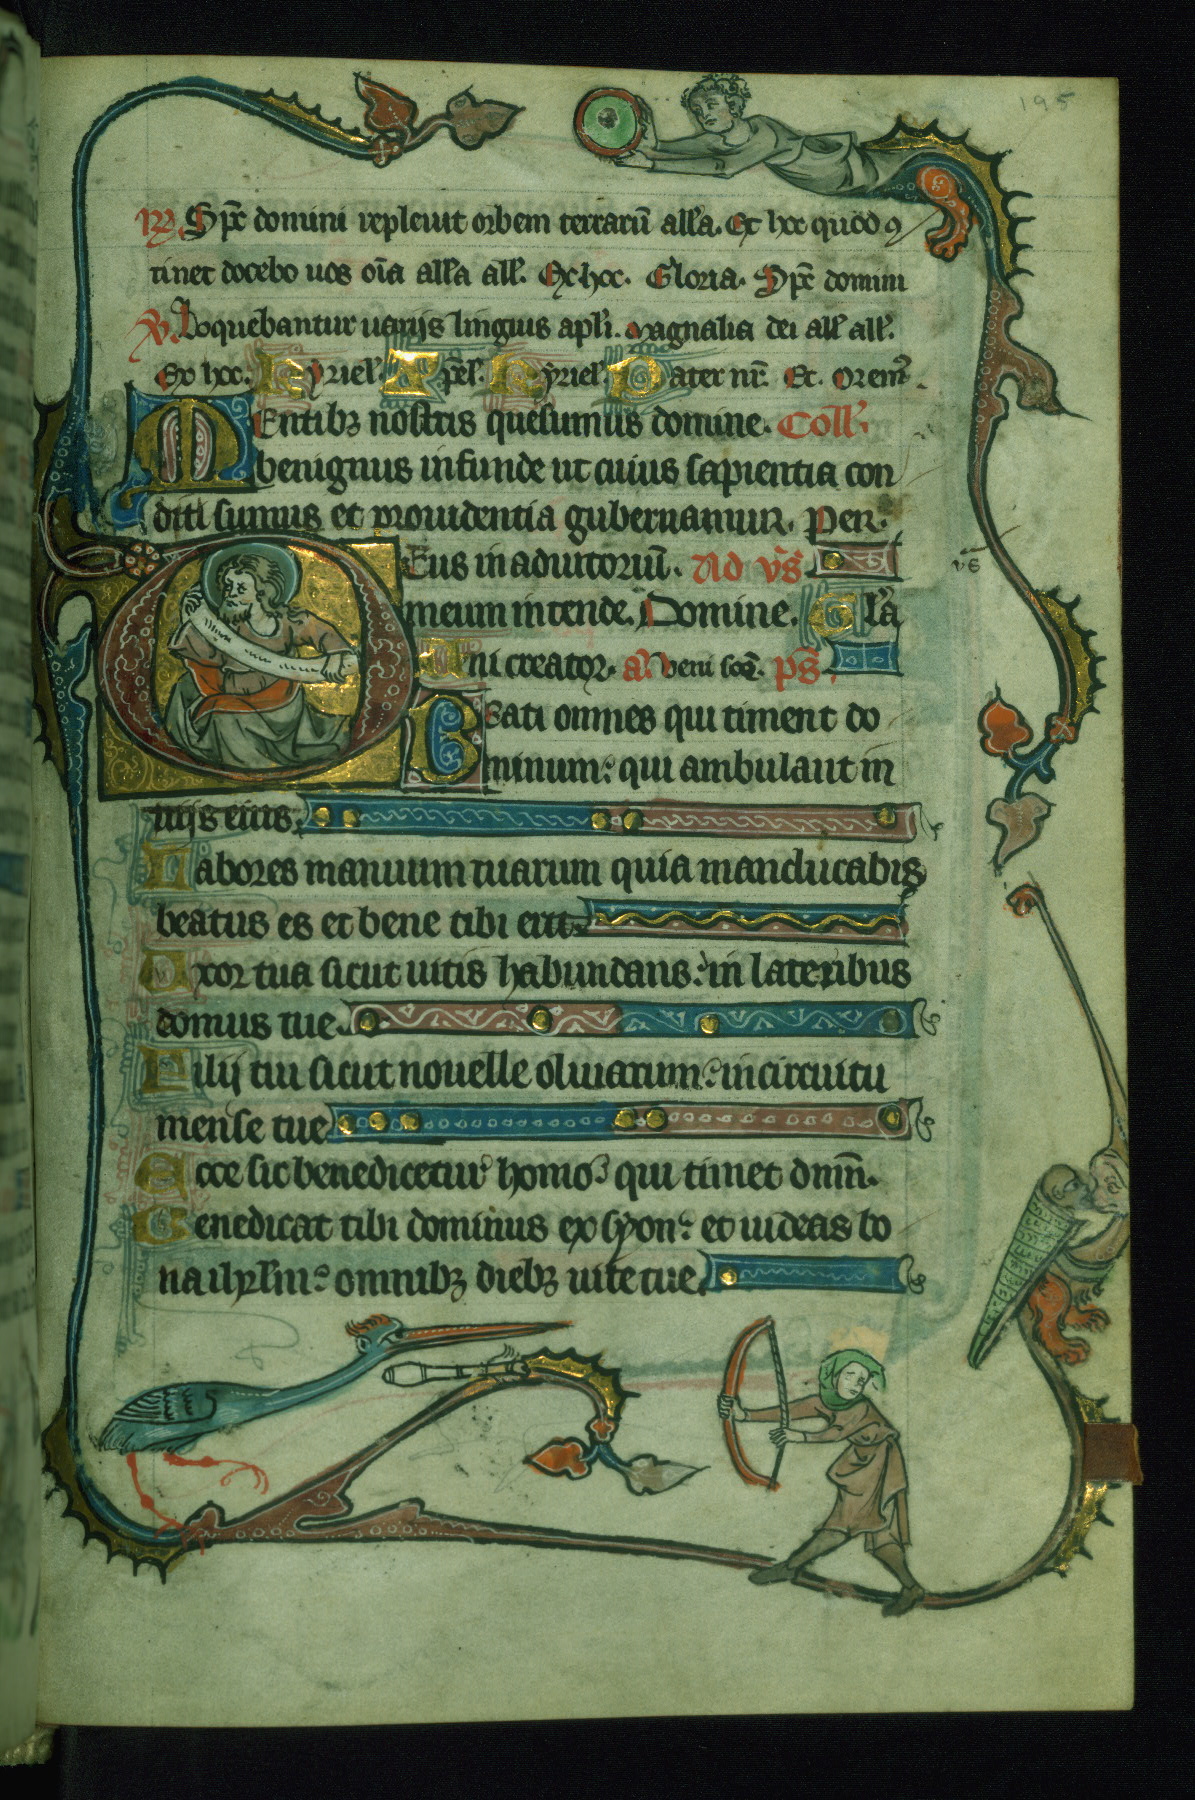 195
R. Sp̄c domini repleuit orbem terrarū all'a. Et hoc quod 9
tinet docebo uos oīa all'a all'. Et hoc. Gloria. Sp̄c domini
V. Loquebantur uarijs linguis apl'i. magnalia dei all' all'.
Et hoc. Kyriel'. Xp̄el'. Kyriel'. Pater nr̄. Et. Orem9.
Mentibꝫ nostris quesumus domine. Coll'.
benignus infunde ut cuius sapientia con
diti sumus et prouidentia gubernamur. Per.
Deus in adiutoriū. Ad vs̄
vs̄
meum intende. Domine. Gl'a
Veni creator. a. Veni ps̄.
Beati omnes qui timent do
minum: qui ambulant in
uijs eius.
Labores manuum tuarum quia manducabis
beatus es et bene tibi erit.
Uxor tua sicut uitis habundans: in lateribus
domus tue.
Filij tui sicut nouelle oliuarum: in circuitu
mense tue
Ecce sic benedicetur homo: qui timet dnm̄.
Benedicat tibi dominus ex syon: et uideas bo
na ihrl'm: omnibꝫ diebꝫ uite tue.